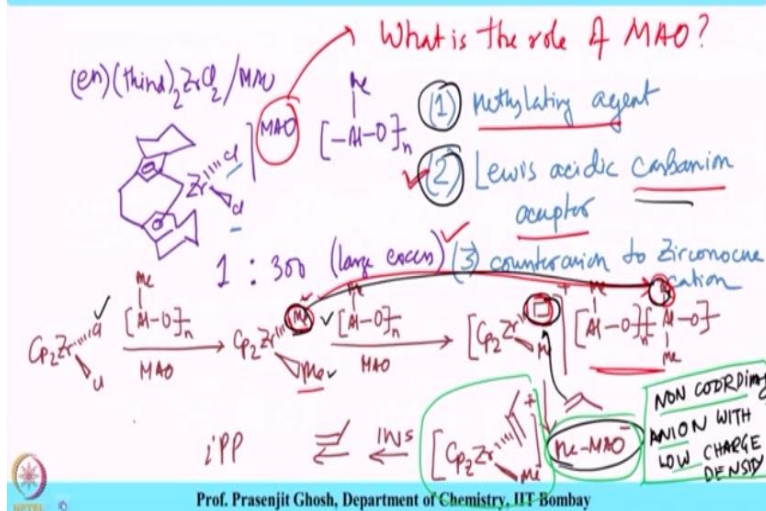 What is the role of MAO?
(en)(thind)2ZrCl2/MAO
(1) Methylating agent
MAO
Me
[-Al-O]n
(2) Lewis acidic carbanion
Zr
Cl
Cl
acceptor
1 : 300 (large excess) (3) counteranion to Zirconocene
cation
Me
Me
+
Me
Cp2Zr
Cl
Cl
[Al-O]n
MAO
Cp2Zr
Me
Me
[Al-O]n
MAO
[Cp2Zr
Me
[Al-O]n
[Al-O]
Me
iPP
INS
[Cp2Zr
Me
]+
Me-MAO-
NON COORDINA
ANION WITH
LOW CHARGE
DENSITY
NPTEL
Prof. Prasenjit Ghosh, Department of Chemistry, IIT Bombay